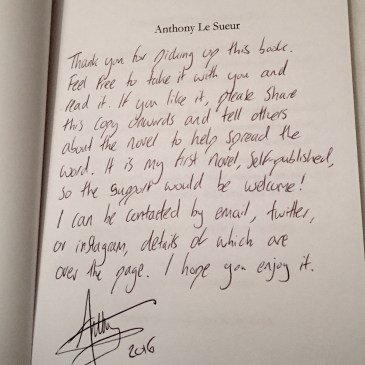 Anthony Le Sueur
Thank you for picking up this book.
Feel free to take it with you and
read it. If you like it, please share
this copy onwards and tell others
about the novel to help spread the
word. It is my first novel, self-published,
so the support would be welcome!
I can be contacted by email, twitter,
or instagram, details of which are
over the page. I hope you enjoy it.
2016